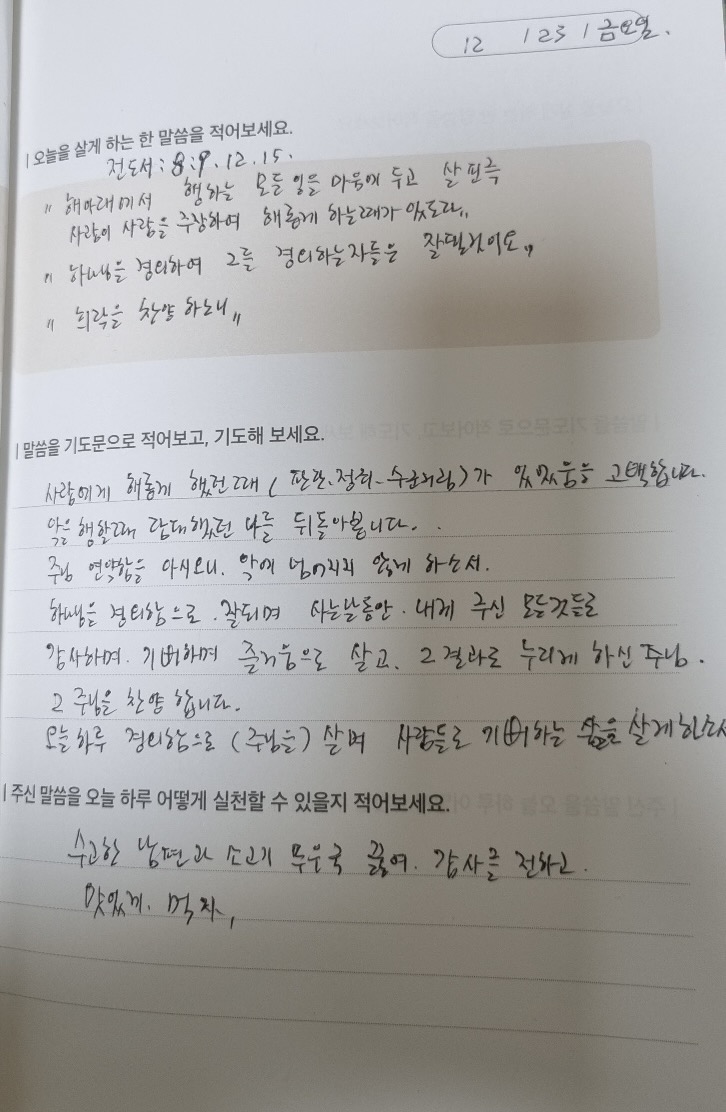 12 / 23 / 금요일.
| 오늘을 살게 하는 한 말씀을 적어보세요.
전도서 : 8:9. 12. 15.
" 해아래에서 행하는 모든 일을 마음에 두고 살핀즉
사람이 사람을 주장하여 해롭게 하는때가 있도다"
" 하나님을 경외하여 그를 경외하는자들은 잘될것이요"
" 희락을 찬양 하노니"
| 말씀을 기도문으로 적어보고, 기도해 보세요.
사람에게 해롭게 했던때( 판단、정죄、수군거림)가 있었음을 고백합니다.
악을 행할때 담대했던 나를 뒤돌아봅니다.
주님 연약함을 아시오니. 악에 넘어지지 않게 하소서.
하나님을 경외함으로. 잘되며 사는날동안. 내게 주신 모든것들로
감사하며. 기뻐하며 즐거움으로 살고. 그결과로 누리게 하신 주님.
그 주님을 찬양 합니다.
오늘하루 경외함으로 (주님을) 살며 사람들로 기뻐하는 삶을 살게하소서
| 주신 말씀을 오늘 하루 어떻게 실천할 수 있을지 적어보세요.
수고한 남편과 소고기 무우국 끓여. 감사를 전하고.
맛있게. 먹자,